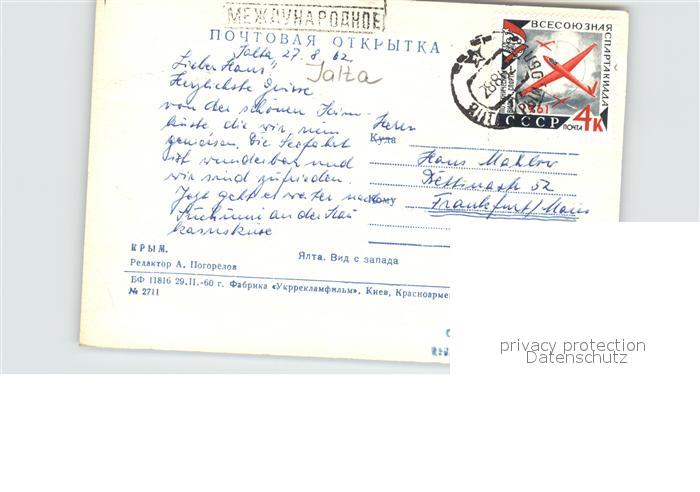 МЕЖДУНАРОДНОЕ
ПОЧТОВАЯ ОТКРЫТКА
Jalta 27. 8. 62
Jalta
Lieber Hans,
Herzlichste Grüsse
von der schönen Krim-
küste, die wir
geniessen. Die Seefahrt
ist wunderbar und
wir sind zufrieden.
Jetzt geht es weiter nach
an der Kau
kasusküste
ВСЕСОЮЗНАЯ
СПАРТАКИАДА
1961
СССР ПОЧТА 4К
Herrn
Куда
Hans
52
Кому
Frankfurt/Main
КРЫМ.
Ялта. Вид с запада
Редактор А. Погорелов
БФ 11816 29.II.-60 г. Фабрика «Укррекламфильм». Киев, Красноарме
№ 2711
privacy protection
Datenschutz